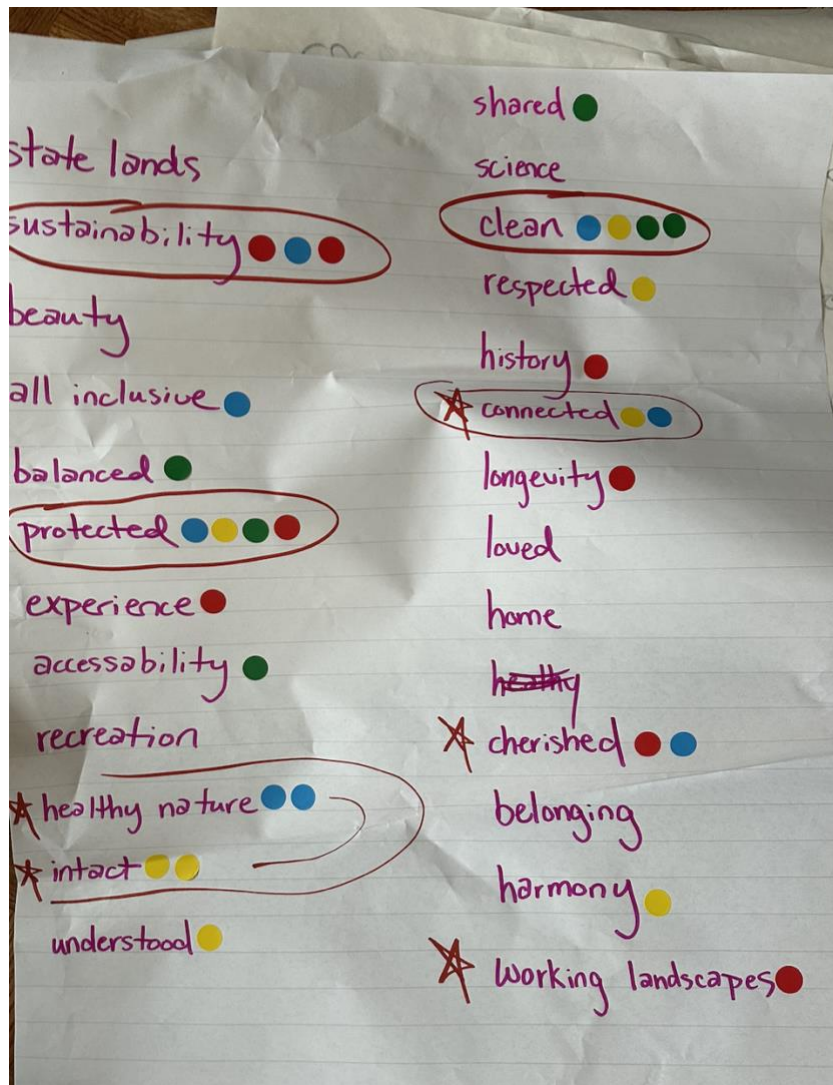 state lands
sustainability
beauty
all inclusive
balanced
protected
experience
accessability
recreation
healthy nature
intact
understood
shared
science
clean
respected
history
connected
longevity
loved
home
healthy
cherished
belonging
harmony
working landscapes